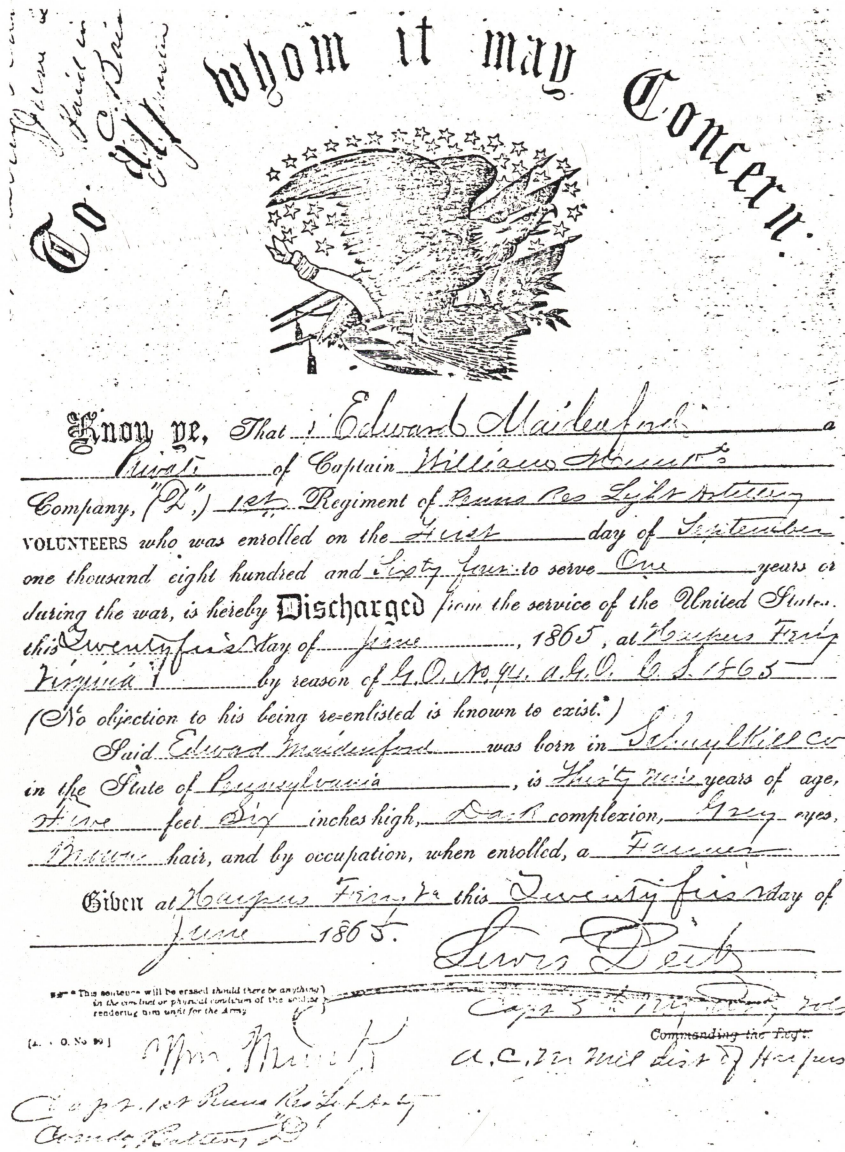 To all whom it may Concern:
Know ye, That Edward Maidenford a
Private of Captain William Munk's
Company, ("D",) 1st Regiment of Penna Res Light Artillery
VOLUNTEERS who was enrolled on the First day of September
one thousand eight hundred and Sixty four to serve One years or
during the war, is hereby Discharged from the service of the United States
this Twenty first day of June, 1865, at Harpers Ferry
Virginia by reason of G.O. No. 94. A.G.O. C.S. 1865
(No objection to his being re-enlisted is known to exist.*)
Said Edward Maidenford was born in Schuylkill Co
in the State of Pennsylvania, is Thirty Nine years of age,
Five feet Six inches high, Dark complexion, Grey eyes,
Brown hair, and by occupation, when enrolled, a Farmer
Given at Harpers Ferry Va this Twenty first day of
June 1865.
Lewis
* This sentence will be erased should there be anything
in the conduct or physical condition of the soldier
rendering him unfit for the Army
Capt 5th
Commanding the Regt.
[A. G. O. No 99]
Wm. Munk
A. C. M Mil dist of Harpers
Capt. 1st Penna Res Lgt Arty
Comdg Battery "D"